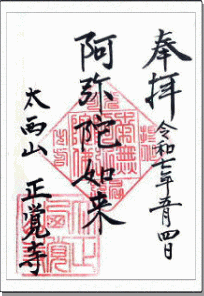 奉拝
令和七年五月四日
阿弥陀如来
太西山 正覚寺